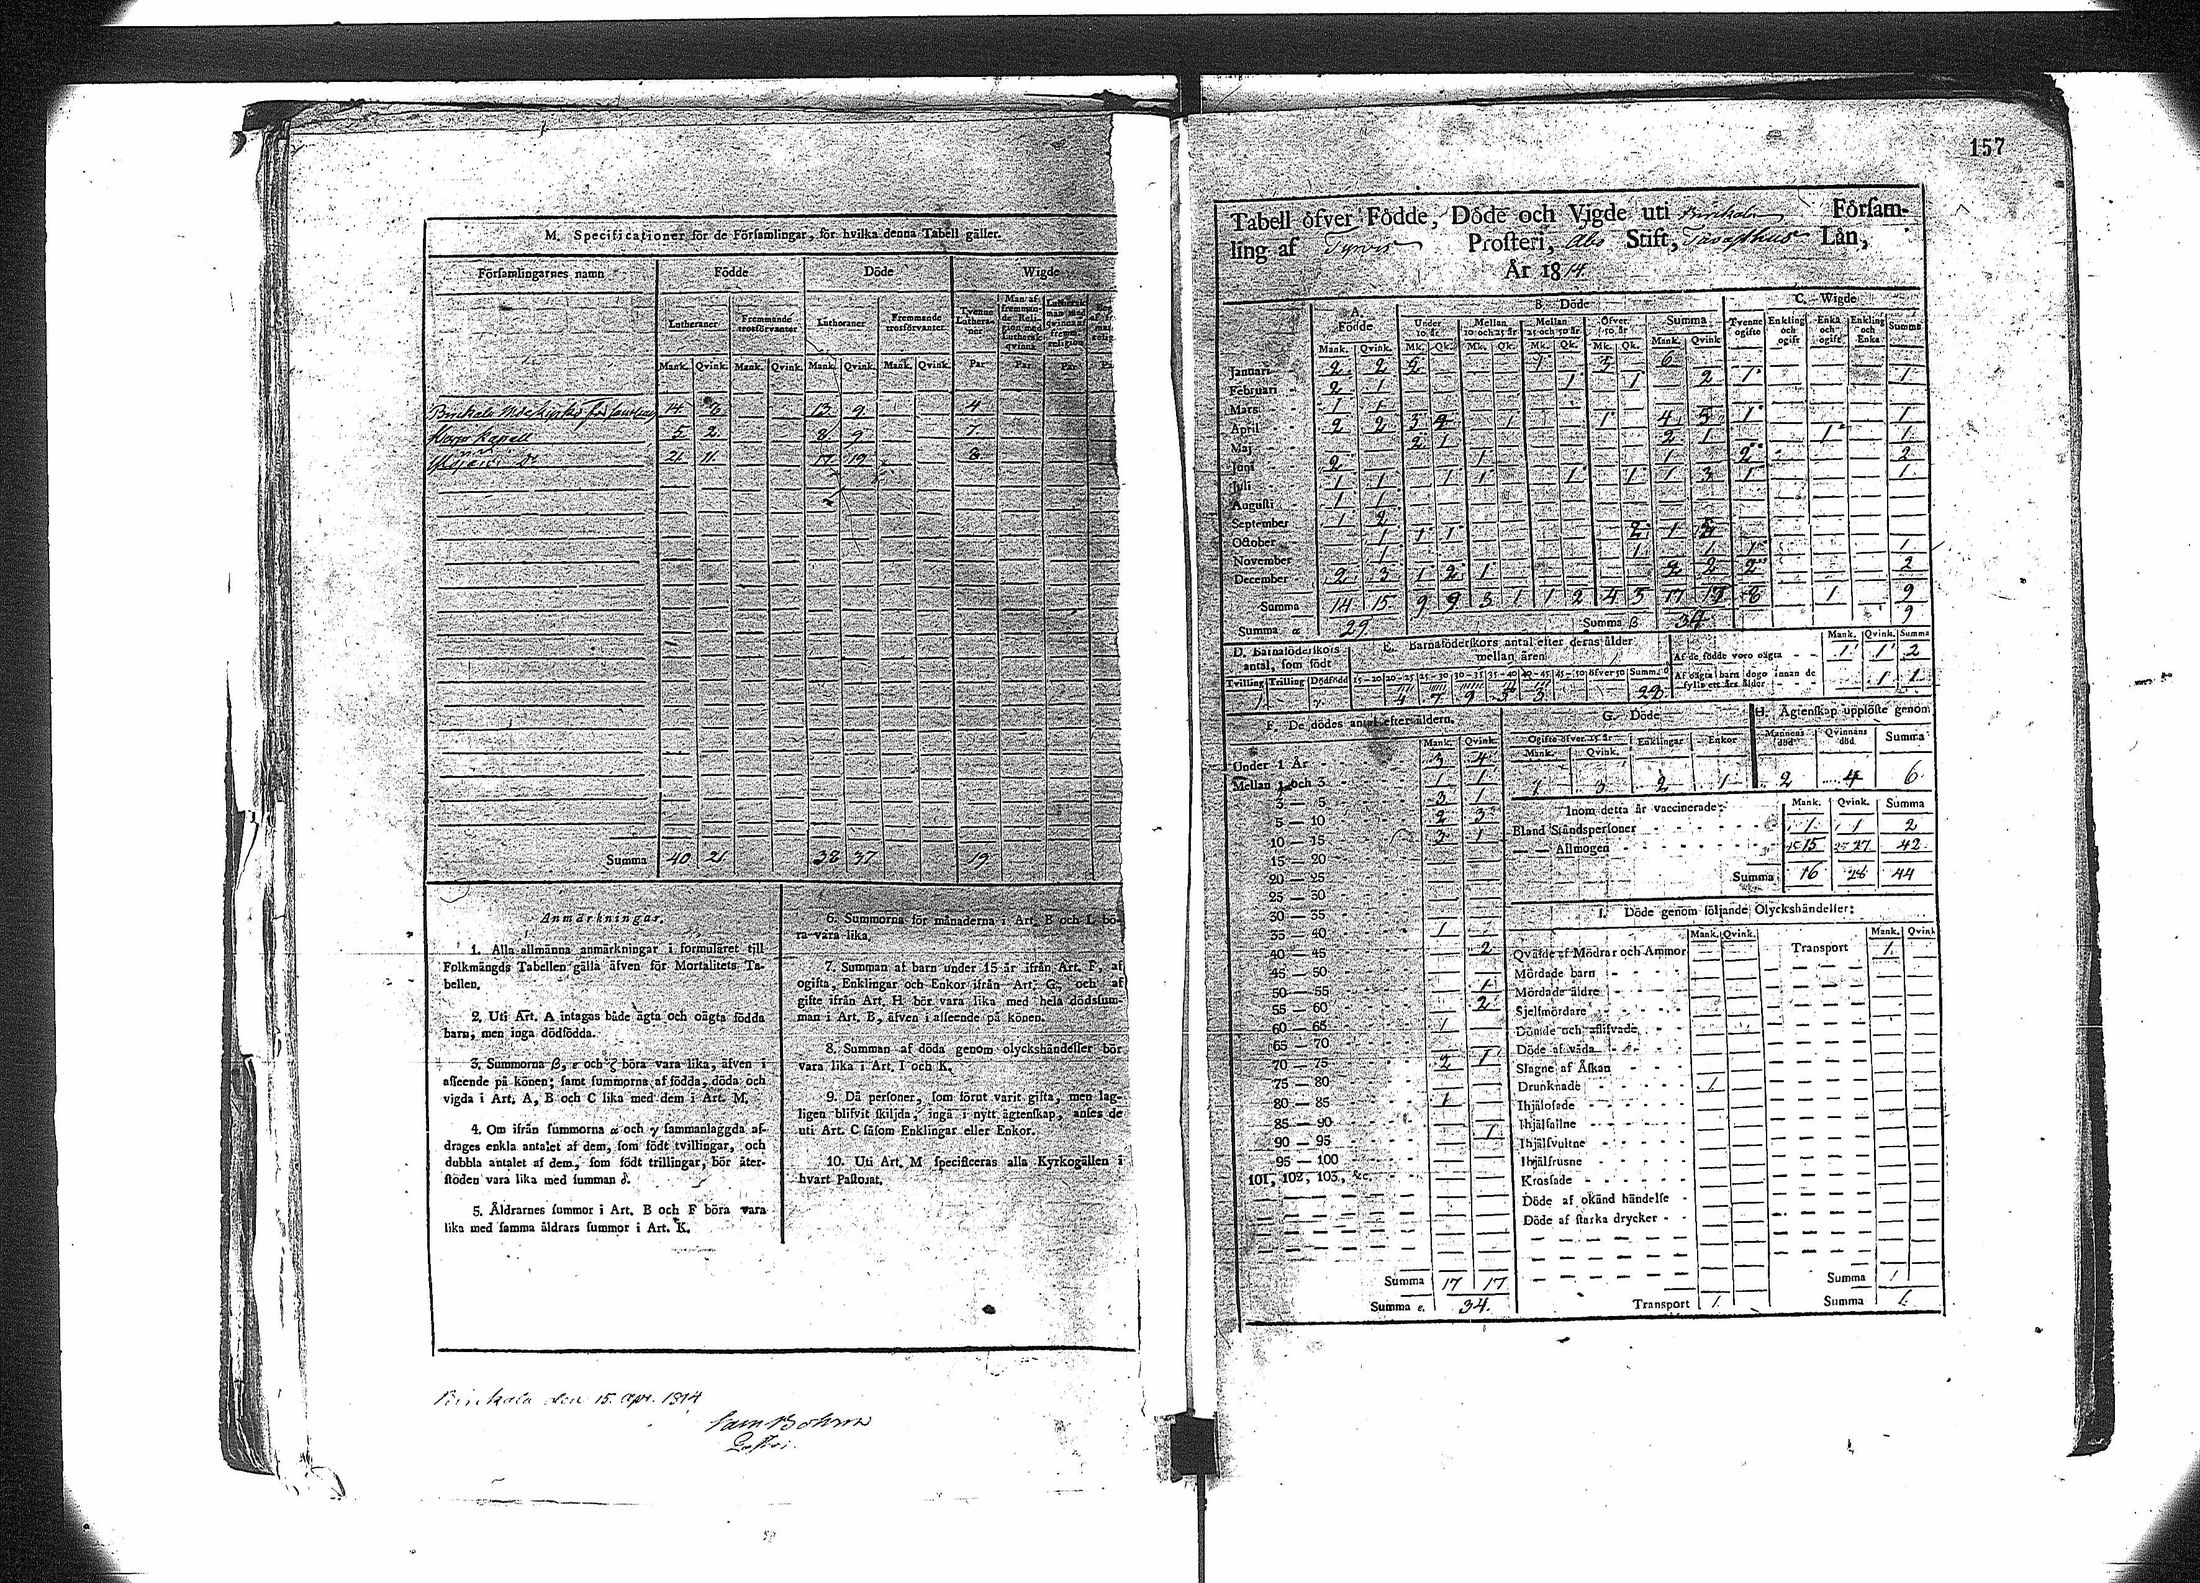 M. Specificationer för de Församlingar, för hvilka denna Tabell gäller.
Församlingarnes namn Födde Döde Wigde
Lutheraner Fremmande trosförvanter Lutheraner Fremmande trosförvanter Tvenne Lutheraner
Mank. Qvink. Mank. Qvink. Mank. Qvink. Mank. Qvink. Par Par Par
14 13 9 4
Kapell 5 2 8 9 7
21 11 17 19 8
Summa 40 21 38 37 19
Anmärkningar.
1. Alla allmänna anmärkningar i formuläret till
Folkmängds Tabellen gälla äfven för Mortalitets Ta-
bellen.
2. Uti Art. A intagas både ägta och oägta födda
barn, men inga dödfödda.
3. Summorna β, ε och ζ böra vara lika, äfven i
afseende på könen; samt summorna af födda, döda och
vigda i Art. A, B och C lika med dem i Art. M.
4. Om ifrån summorna α och γ sammanlaggda af-
drages enkla antalet af dem, som födt tvillingar, och
dubbla antalet af dem, som födt trillingar, bör åter-
stöden vara lika med summan δ.
5. Åldrarnes summor i Art. B och F böra vara
lika med samma åldrars summor i Art. K.
6. Summorna för månaderna i Art. B och L bö-
ra vara lika.
7. Summan af barn under 15 år ifrån Art. F, af
ogifta, Enklingar och Enkor ifrån Art. G, och af
gifte ifrån Art. H bör vara lika med hela dödssum-
man i Art. B, äfven i afseende på könen.
8. Summan af döda genom olyckshändelser bör
vara lika i Art. I och K.
9. Då personer, som förut varit gifta, men lag-
ligen blifvit skiljda, ingå i nytt ägtenskap, anses de
uti Art. C såsom Enklingar eller Enkor.
10. Uti Art. M specificeras alla Kyrkogällen i
hvart Pastorat.
Birkala den 15. apr. 1814
Sam Bohm
157
Tabell öfver Födde, Döde och Vigde uti Birkala Församling
ling af Tyrvis Prosteri, Åbo Stift, Tavasthus Län,
År 1814.
A. Födde B. Döde C. Wigde
Under 10 år Mellan 10 och 25 år Mellan 25 och 50 år Öfver 50 år Summa Tvenne ogifte Enkling och ogift Enka och ogift Enkling och Enka Summa
Mank. Qvink. Mk. Qk. Mk. Qk. Mk. Qk. Mk. Qk. Mank. Qvink
Januari 2 2 2 1 3 6
Februari 2 1 1 1 2 1 1
Mars 1 1
April 2 2 3 4 1 1 4 5 1 1
Maj 2 1 2 1 1 1
Juni 2 1 1 2 2
Juli 1 1 1 1 1 1 1 3 1 1
Augusti 1 1
September 1 2
October 1 1 1 2 1
November 1 1 1 1 1
December 2 3 1 2 1 2 2 2 2
Summa 14 15 9 9 3 1 1 2 4 5 17 17 8 1 9
Summa α 29 Summa β 34 9
D. Barnaföderskors antal, som födt
E. Barnaföderskors antal efter deras ålder mellan åren
Mank. Qvink. Summa
Af de födde voro oägta 1 1 2
Af oägta barn dogo innan de fyllt ett års ålder 1 1
Tvilling Trilling Dödfödd 15—20 20—25 25—30 30—35 35—40 40—45 45—50 öfver 50 Summa δ
1 4 7 9 5 3 28
F. De dödes antal efter åldern.
Mank. Qvink.
Under 1 År 3 4
Mellan 1 och 3 1 1
3 — 5 3 1
5 — 10 2 3
10 — 15 3 1
15 — 20
20 — 25
25 — 30
30 — 35
35 — 40 1
40 — 45 2
45 — 50
50 — 55 1
55 — 60 2
60 — 65 1
65 — 70
70 — 75 2 1
75 — 80
80 — 85 1
85 — 90
90 — 95 1
95 — 100
101, 102, 103, &c.
Summa 17 17
Summa ε. 34.
G. Döde
Ogifte öfver 15 år Enklingar Enkor
Mank. Qvink.
1 3 2 1
H. Ägtenskap upplöste genom
Mannens död Qvinnans död Summa
2 4 6
Inom detta år vaccinerade: Mank. Qvink. Summa
Bland Ståndspersoner 1 1 2
— — Allmogen 15 27 42
Summa 16 28 44
I. Döde genom följande Olyckshändelser:
Mank. Qvink. Mank. Qvink
Qväfde af Mödrar och Ammor Transport 1
Mördade barn
Mördade äldre
Sjelfmördare
Dömde och aflifvade
Döde af våda
Slagne af Åskan
Drunknade 1
Ihjälosade
Ihjälfallne
Ihjälsvultne
Ihjälfrusne
Krossade
Döde af okänd händelse
Döde af starka drycker
Summa 1
Transport 1 Summa 1